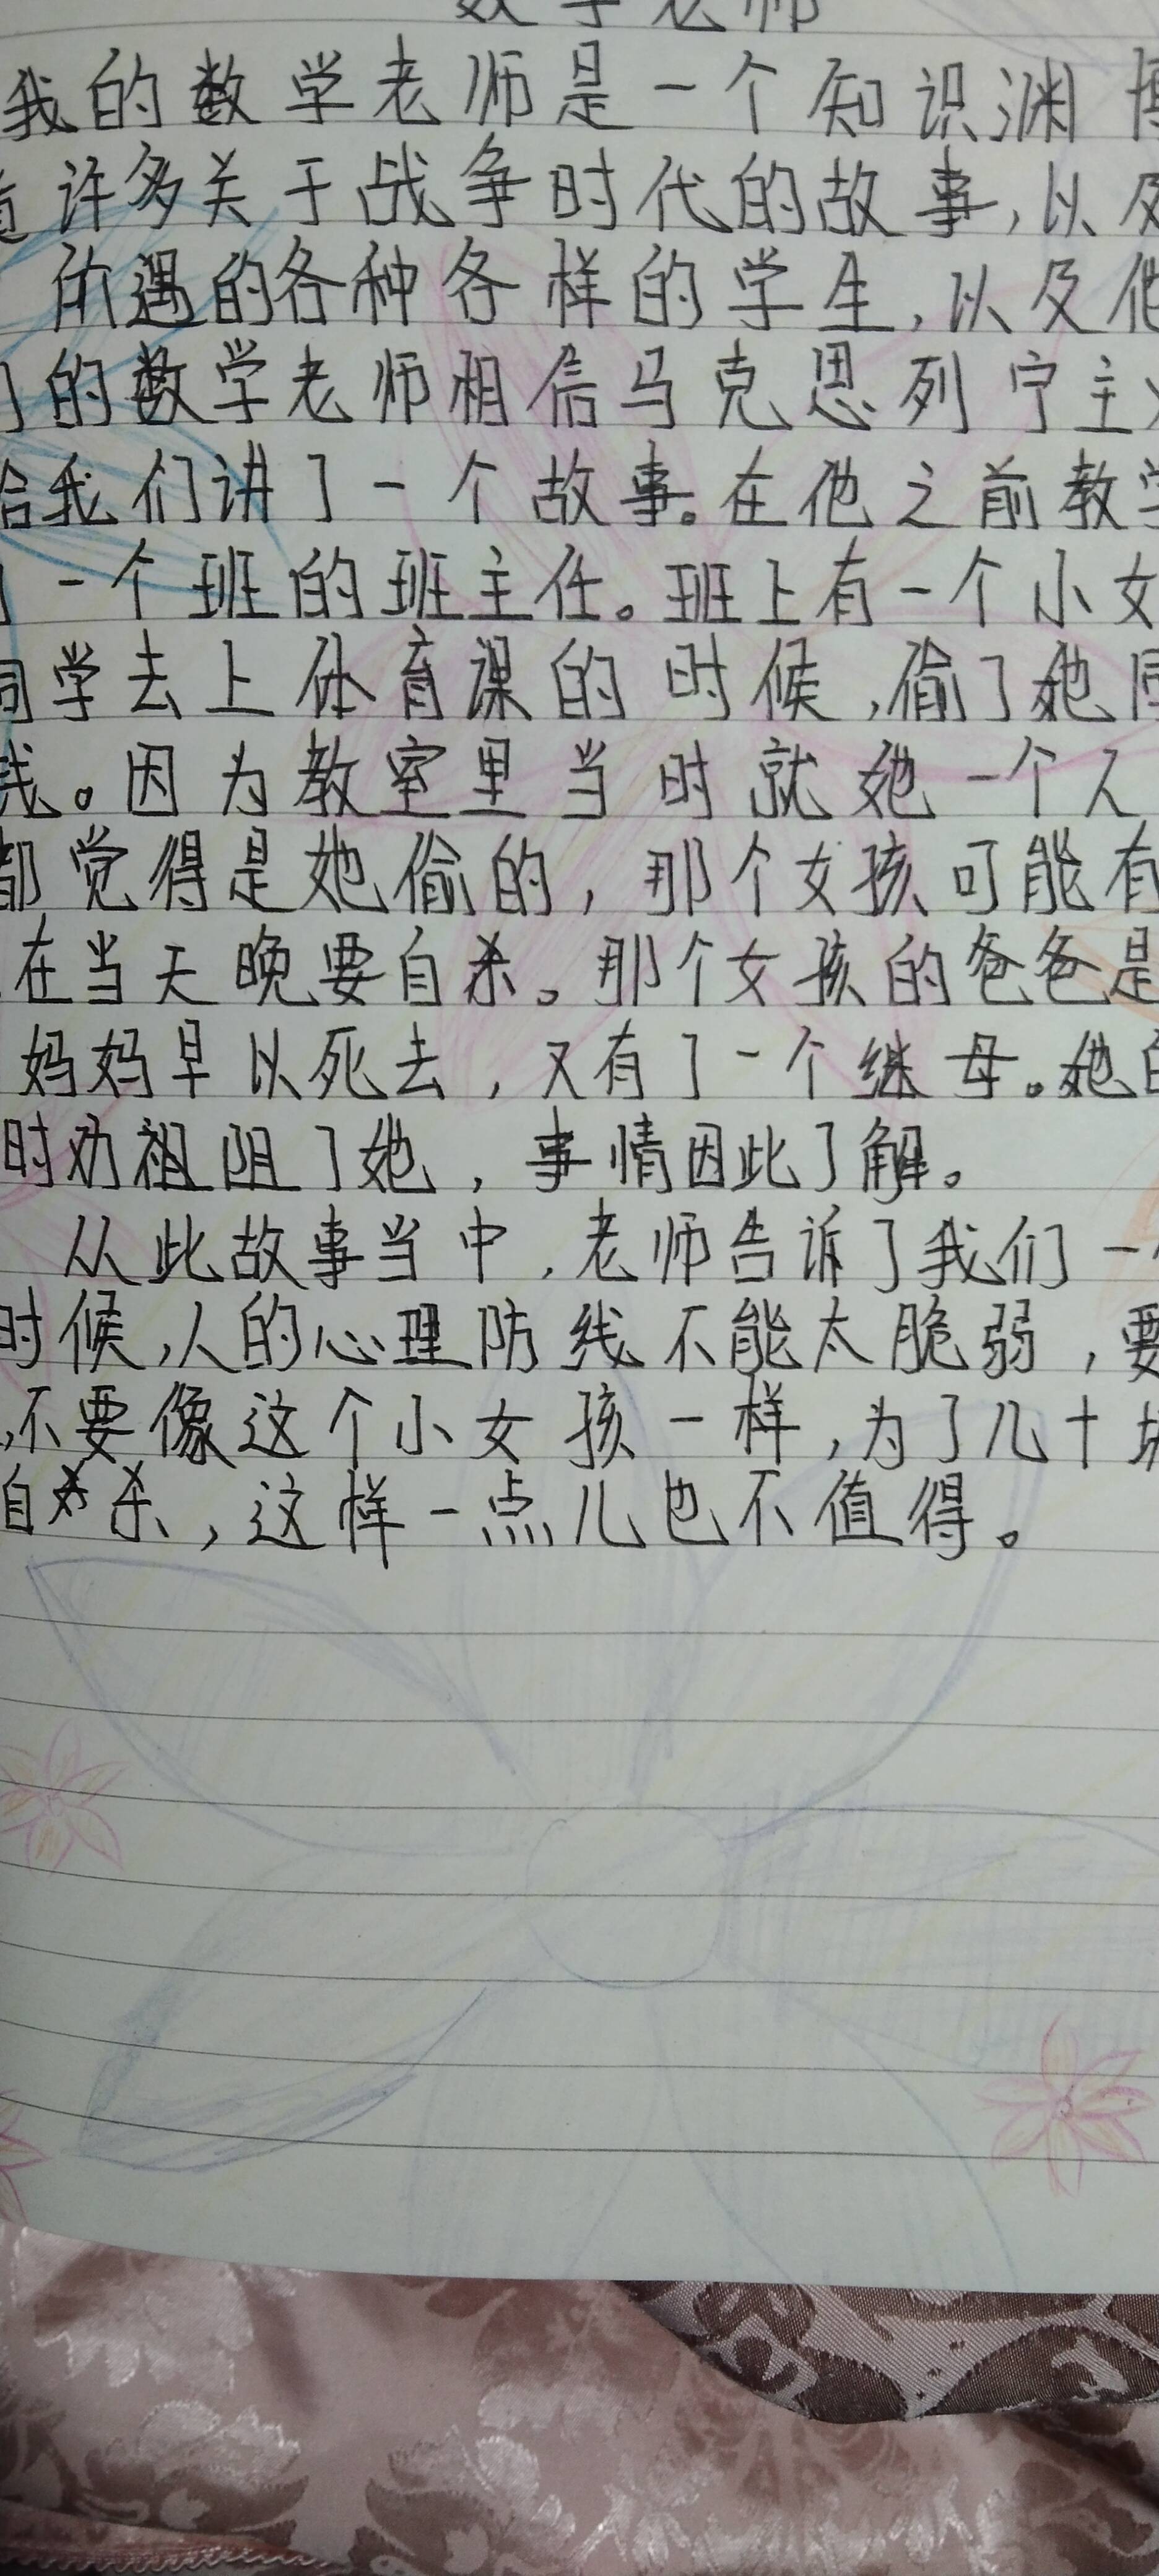 数学老师
我的数学老师是一个知识渊
许多关于战争时代的故事,以及
所遇的各种各样的学生,以及他
们的数学老师相信马克思列宁主义
给我们讲了一个故事。在他之前教学
一个班的班主任。班上有一个小女
同学去上体育课的时候,偷了她同
钱。因为教室里当时就她一个人
都觉得是她偷的,那个女孩可能有
在当天晚要自杀。那个女孩的爸爸是
妈妈早以死去,又有了一个继母。她的
时劝祖阻了她,事情因此了解。
从此故事当中,老师告诉了我们一
时候,人的心理防线不能太脆弱,要
,不要像这个小女孩一样,为了几十块
自杀,这样一点儿也不值得。